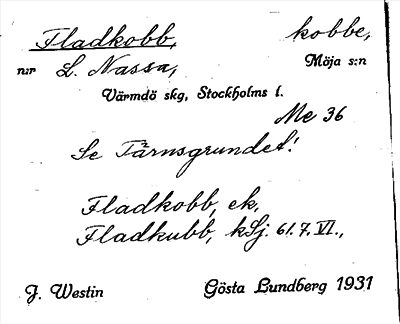 Fladkobb, kobbe,
nnr L. Nassa, Möja s:n
Värmdö skg, Stockholms l.
Me 36
Se Tärnsgrundet!
Fladkobb, ek,
Fladkubb, kSj. 61. 7. VI.,
J. Westin Gösta Lundberg 1931